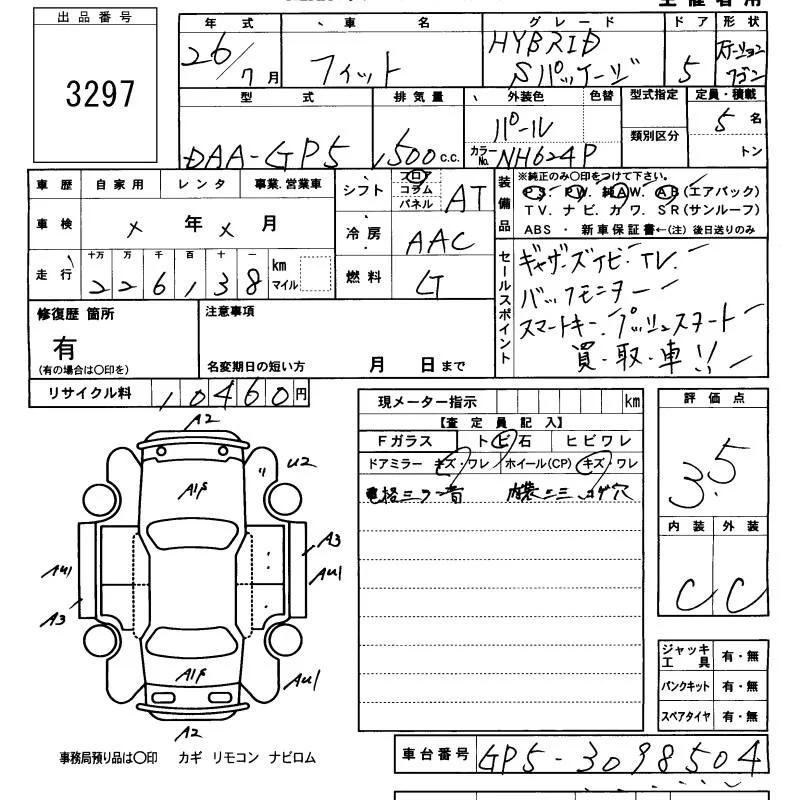 出品番号
3297
年式 車名 グレード ドア 形状
26/7月 フィット HYBRID Sパッケージ 5 ステーションワゴン
型式 排気量 外装色 色替 型式指定 定員・積載
DAA-GP5 1500c.c. パール カラーNo. NH624P 類別区分 5名
トン
車歴 自家用 レンタ 事業.営業車
車検 × 年 × 月
走行 十万 万 千 百 十 一 km マイル
226,138
シフト フロア コラム パネル AT
冷房 AAC
燃料
装備品
※純正のみ〇印をつけて下さい。
PS. PW. 純AW. AB(エアバック)
TV. ナビ. カワ. SR(サンルーフ)
ABS ・ 新車保証書←(注) 後日送りのみ
セールスポイント
ギャザーズナビ・TV.
バックモニター
スマートキー. プッシュスタート
買・取・車!!
修復歴 箇所
有
(有の場合は〇印を)
注意事項
名変期日の短い方 月 日まで
リサイクル料 10460円
現メーター指示 km
【査定員記入】
Fガラス トビ石 ヒビワレ
ドアミラー キズ・ワレ ホイール(CP) キズ・ワレ
電格ミラー音 内装ニミ コゲ穴
評価点
3.5
内装 外装
C C
A2
U2
A1F
A3
AU1
AU1
A3
A1F
AU1
A2
ジャッキ工具 有・無
パンクキット 有・無
スペアタイヤ 有・無
事務局預り品は〇印 カギ リモコン ナビロム
車台番号 GP5-3098504